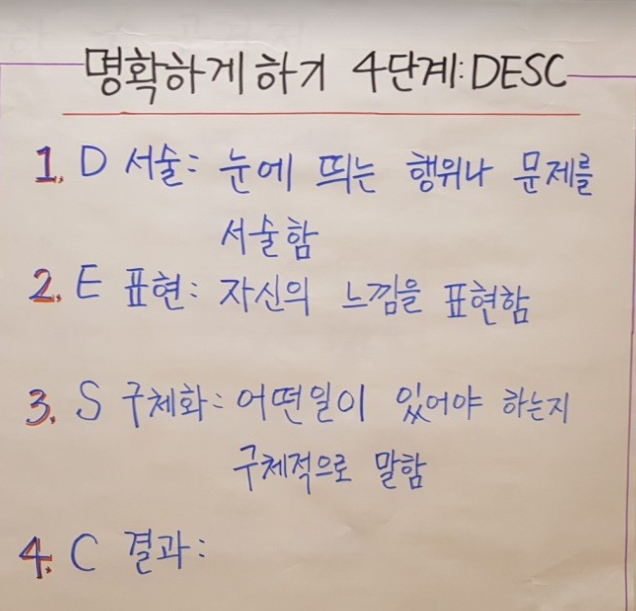 명확하게하기 4단계: DESC
1. D 서술: 눈에 띄는 행위나 문제를
서술함
2. E 표현: 자신의 느낌을 표현함
3. S 구체화: 어떤일이 있어야 하는지
구체적으로 말함
4. C 결과: